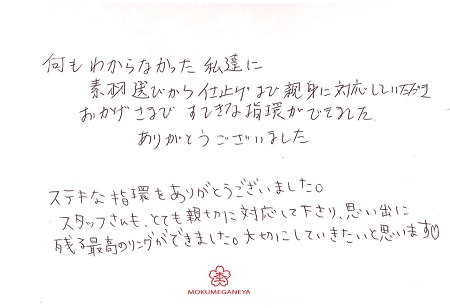 何もわからなかった私達に
素材選びから仕上げまで親身に対応していただき
おかげさまですてきな指環ができました
ありがとうございました
ステキな指環をありがとうございました。
スタッフさんも、とても親切に対応して下さり、思い出に
残る最高のリングができました。大切にしていきたいと思います♡
MOKUMEGANEYA